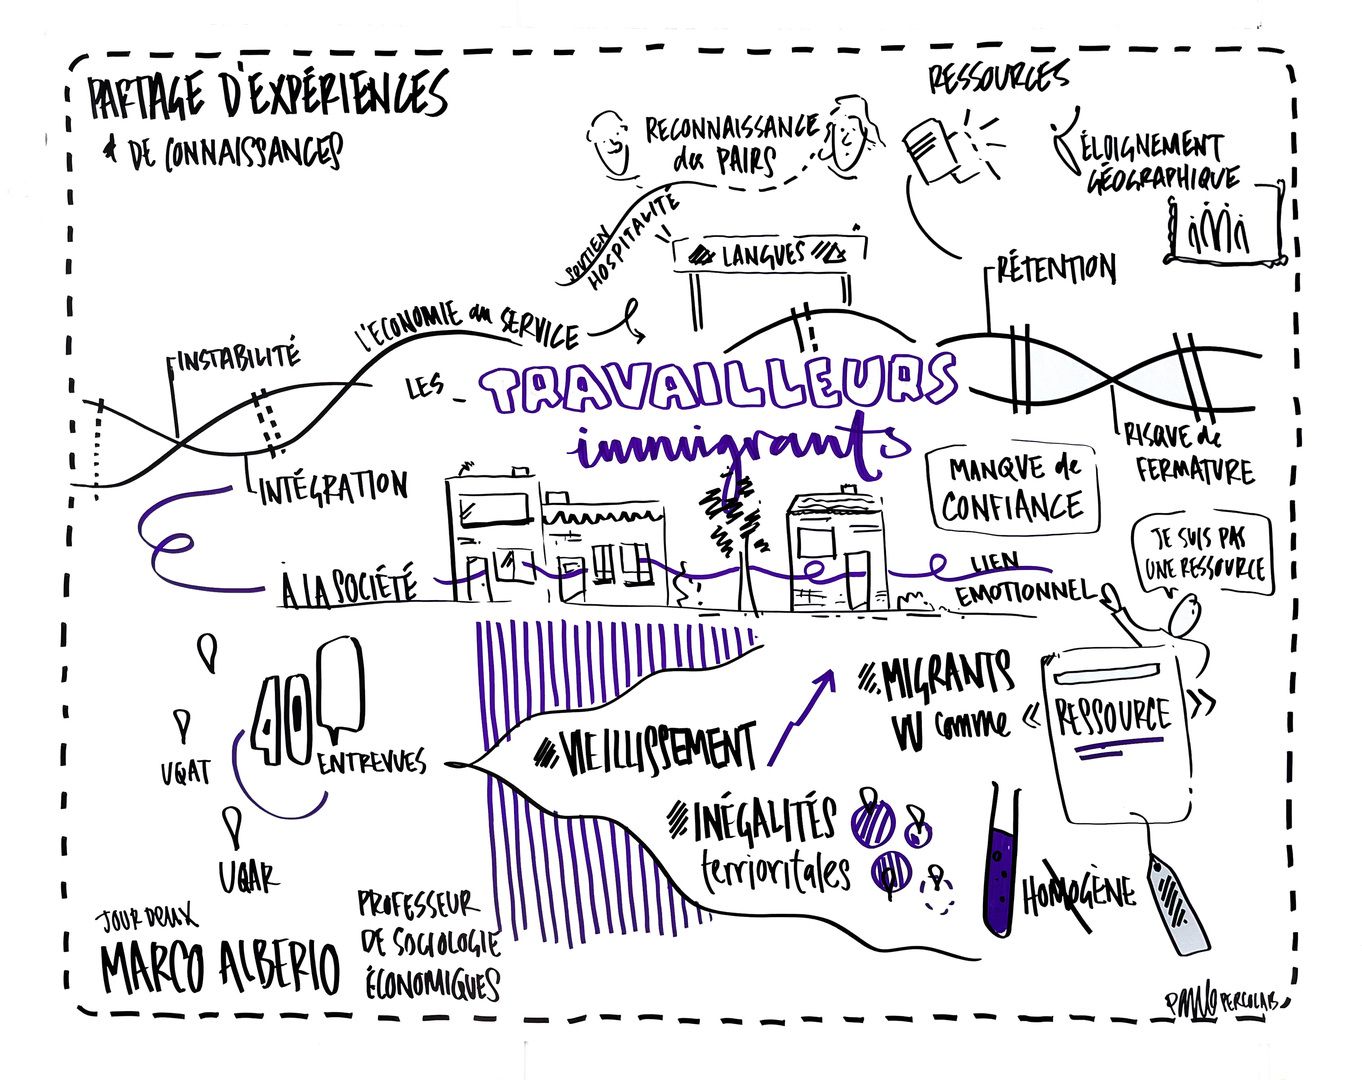 PARTAGE D'EXPÉRIENCES
& DE CONNAISSANCES
RECONNAISSANCE
des PAIRS
SOUTIEN
HOSPITALITÉ
RESSOURCES
ÉLOIGNEMENT
GÉOGRAPHIQUE
LANGUES
RÉTENTION
INSTABILITÉ
L'ECONOMIE du SERVICE
LES
TRAVAILLEURS
immigrants
INTÉGRATION
À LA SOCIÉTÉ
RISQUE de
FERMATURE
MANQUE de
CONFIANCE
JE SUIS PAS
UNE RESSOURCE
LIEN
EMOTIONNEL
40
ENTREVUES
UQAT
UQAR
VIEILLISSEMENT
MIGRANTS
VU comme
« RESSOURCE »
INÉGALITÉS
terrioritales
HOMOGÈNE
JOUR DEUX
MARCO ALBERIO
PROFESSEUR
DE SOCIOLOGIE
ÉCONOMIQUES
PERCOLAB